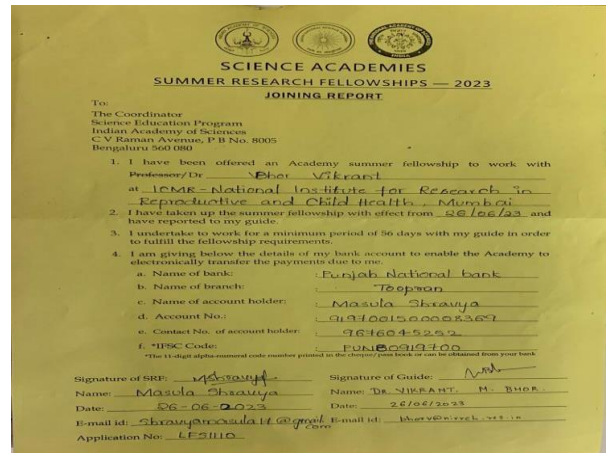 SCIENCE ACADEMIES
SUMMER RESEARCH FELLOWSHIPS — 2023
JOINING REPORT
To:
The Coordinator
Science Education Program
Indian Academy of Sciences
C V Raman Avenue, P B No. 8005
Bengaluru 560 080
1. I have been offered an Academy summer fellowship to work with
Professor/Dr Bhor Vikrant
at ICMR-National Institute for Research in
Reproductive and Child Health, Mumbai
2. I have taken up the summer fellowship with effect from 26/06/23 and
have reported to my guide.
3. I undertake to work for a minimum period of 56 days with my guide in order
to fulfill the fellowship requirements.
4. I am giving below the details of my bank account to enable the Academy to
electronically transfer the payments due to me.
a. Name of bank: : Punjab National bank
b. Name of branch: : Toopran
c. Name of account holder: : Masula Shravya
d. Account No.: : 9197001500008369
e. Contact No. of account holder: : 9676045252
f. *IFSC Code: : PUNB0919700
*The 11-digit alpha-numeral code number printed in the cheque/pass book or can be obtained from your bank
Signature of SRF: MShravya Signature of Guide:
Name: Masula Shravya Name: DR. VIKRANT. M. BHOR.
Date: 26-06-2023 Date: 26/06/2023
E-mail id: shravyamasula14@gmail.com E-mail id: bhorv@nirrch.res.in
Application No: LFS1110